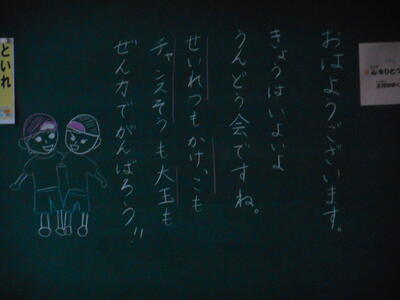 おはようございます。
きょうはいよいよ
うんどう会ですね。
せいれつもかけっこも
チャンスそうも大玉も
ぜん力でがんばろう!!
といれ
心をひとつ